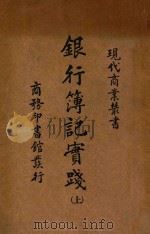 現代商業叢書
銀行簿記實踐
(上)
商務印書館發行